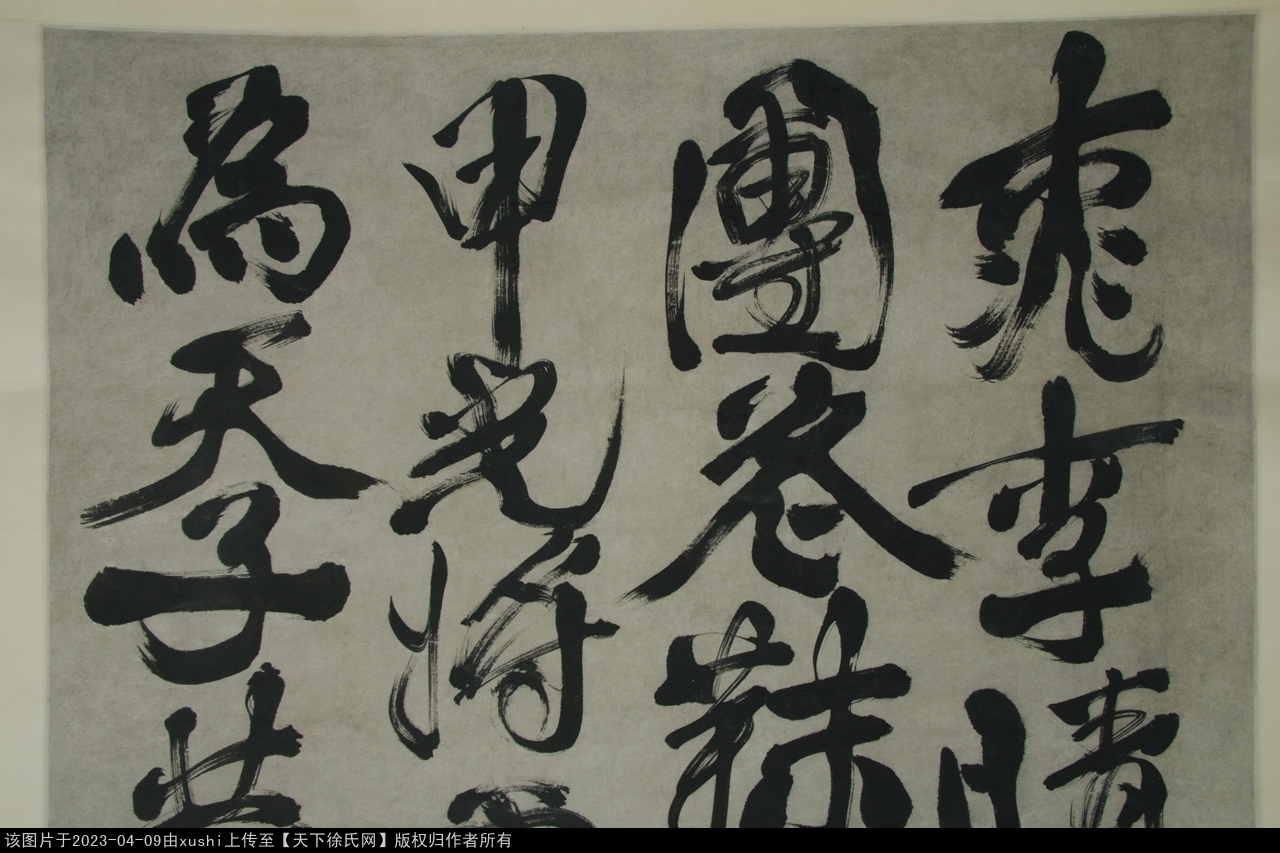 桃李晴
團卷
甲光将
為天子
该图片于2023-04-09由xushi上传至【天下徐氏网】版权归作者所有